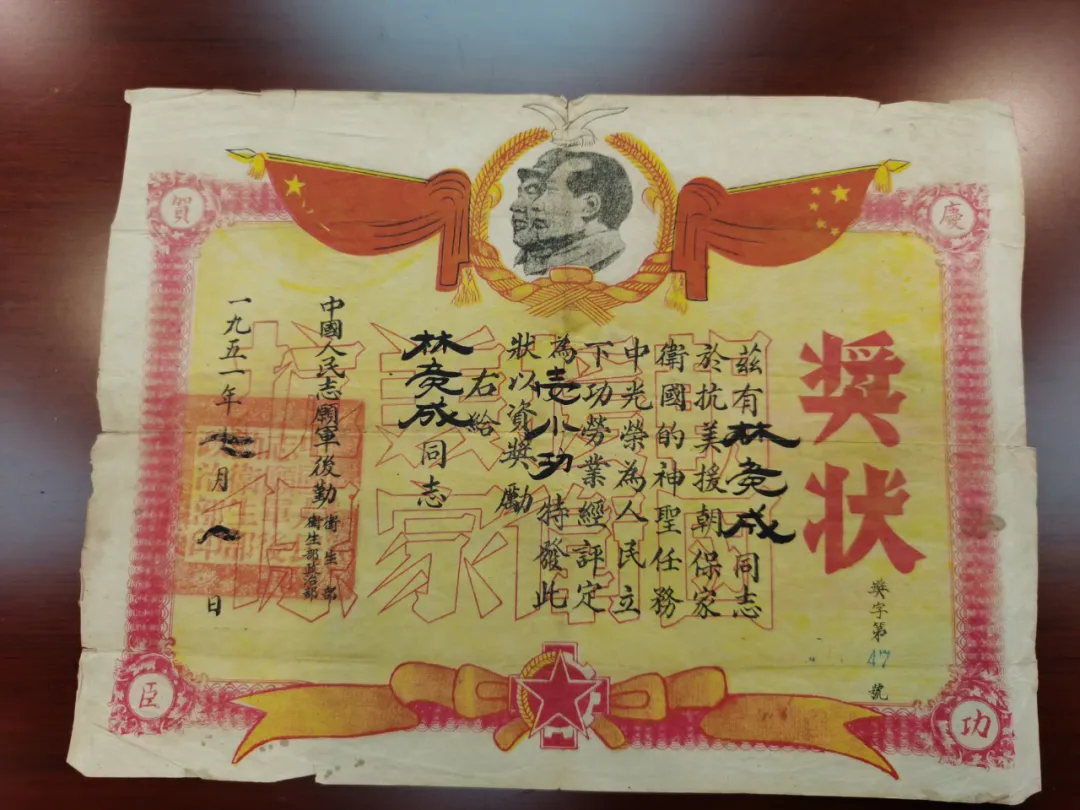 慶賀
功臣
奬状
獎字第47號
茲有林竞成同志
於抗美援朝保家
衛國的神聖任務
中光榮為人民立
下功勞業經評定
為壹小功特發此
狀以資獎勵
右給
林竞成同志
中國人民志願軍後勤
衛生部
衛生部政治部
一九五一年七月八日
抗美援朝
保家衛國